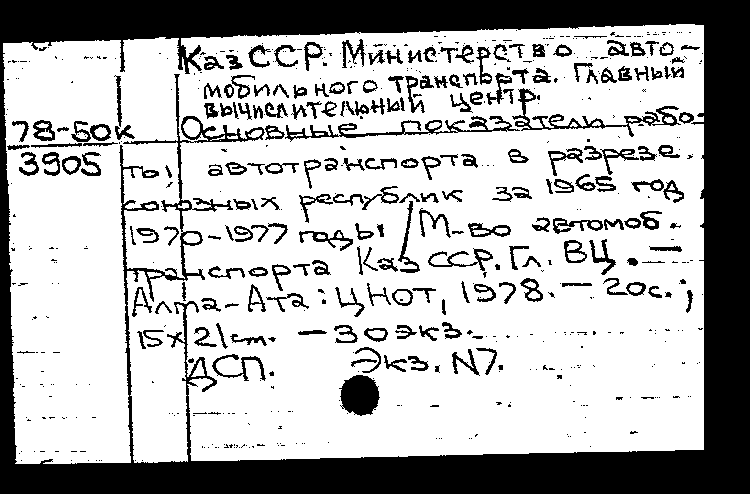 Каз ССР. Министерство авто-
мобильного транспорта. Главный
вычислительный центр.
78-50к Основные показатели рабо-
3905 ты автотранспорта в разрезе
союзных республик за 1965 год,
1970-1977 годы / М-во автомоб.
транспорта Каз ССР. Гл. ВЦ. —
Алма-Ата: ЦНОТ, 1978. — 20с.;
15х21 ст. — 30 экз.
ДСП. Экз. N7.